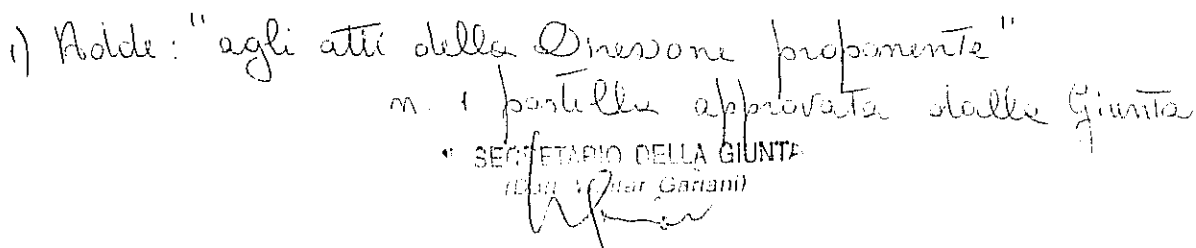 1) Adde: "agli atti della Direzione proponente"
n. 1 postilla approvata dalla Giunta
SEGRETARIO DELLA GIUNTA
Gariani)